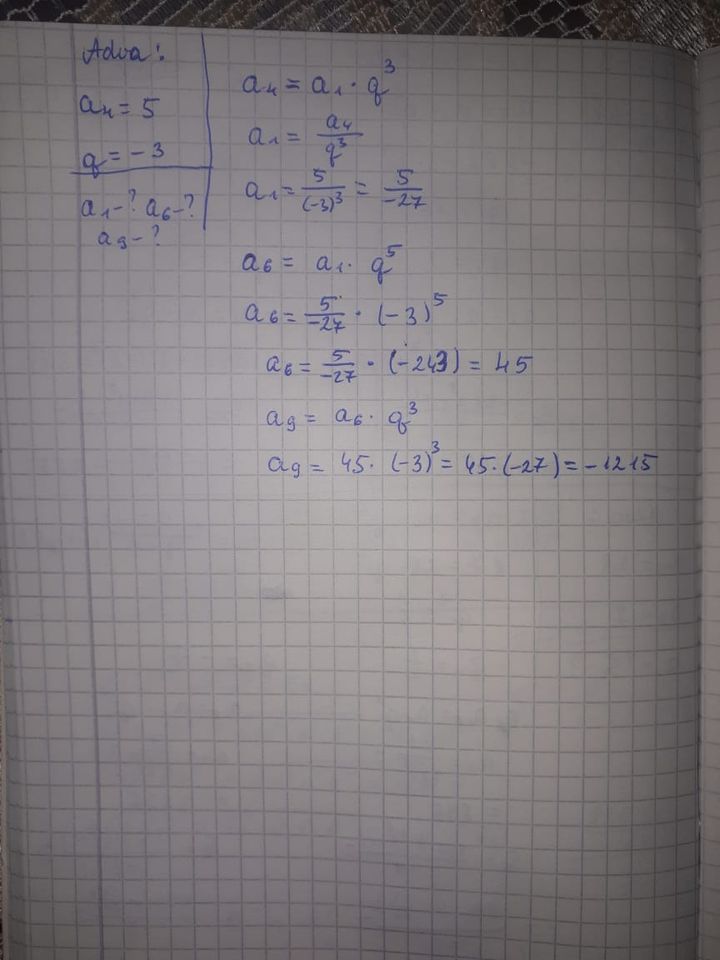 Adva:
a₄ = 5
q = -3
a₁-? a₆-?
a₉-?
a₄ = a₁ · q³
a₁ = a₄/q³
a₁ = 5/(-3)³ = 5/-27
a₆ = a₁ · q⁵
a₆ = 5/-27 · (-3)⁵
a₆ = 5/-27 · (-243) = 45
a₉ = a₆ · q³
a₉ = 45 · (-3)³ = 45 · (-27) = -1215